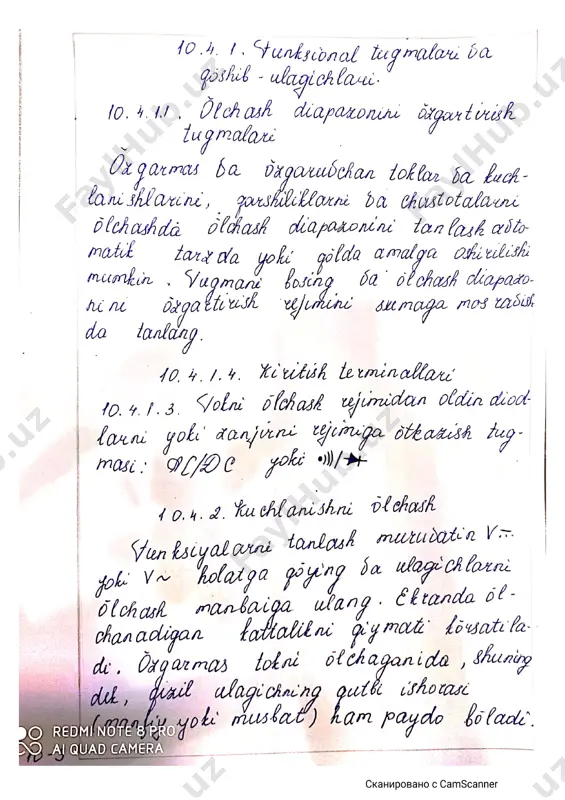 10.4.1. Funksional tugmalari va
qoshib - ulagichlari.
10.4.1.1. Ölchash diapazonini özgartirish
tugmalari
Özgarmas va özgaruvchan toklar va kuch-
lanishlarini, qarshiliklarni va chastotalarni
ölchashda ölchash diapazonini tanlash avto-
matik tarzda yoki qölda amalga oshirilishi
mumkin. Tugmani bosing va ölchash diapazo-
nini özgartirish rejimini sxemaga mos ravish
da tanlang.
10.4.1.4. Kiritish terminallari
10.4.1.3. Tokni ölchash rejimidan oldin diod-
larni yoki zanjirni rejimiga ötkazish tug-
masi: AC/DC yoki
10.4.2. Kuchlanishni ölchash
Funksiyalarni tanlash muruvatin V⎓
yoki V~ holatga qöying va ulagichlarni
ölchash manbaiga ulang. Ekranda öl-
chanadigan kattalikni qiymati körsatila-
di. Özgarmas tokni ölchaganida, shuning
dek, qizil ulagichning qutbi ishorasi
(manfiy yoki musbat) ham paydo böladi.
REDMI NOTE 8 PRO
AI QUAD CAMERA
Сканировано с CamScanner
FaylHub.uz